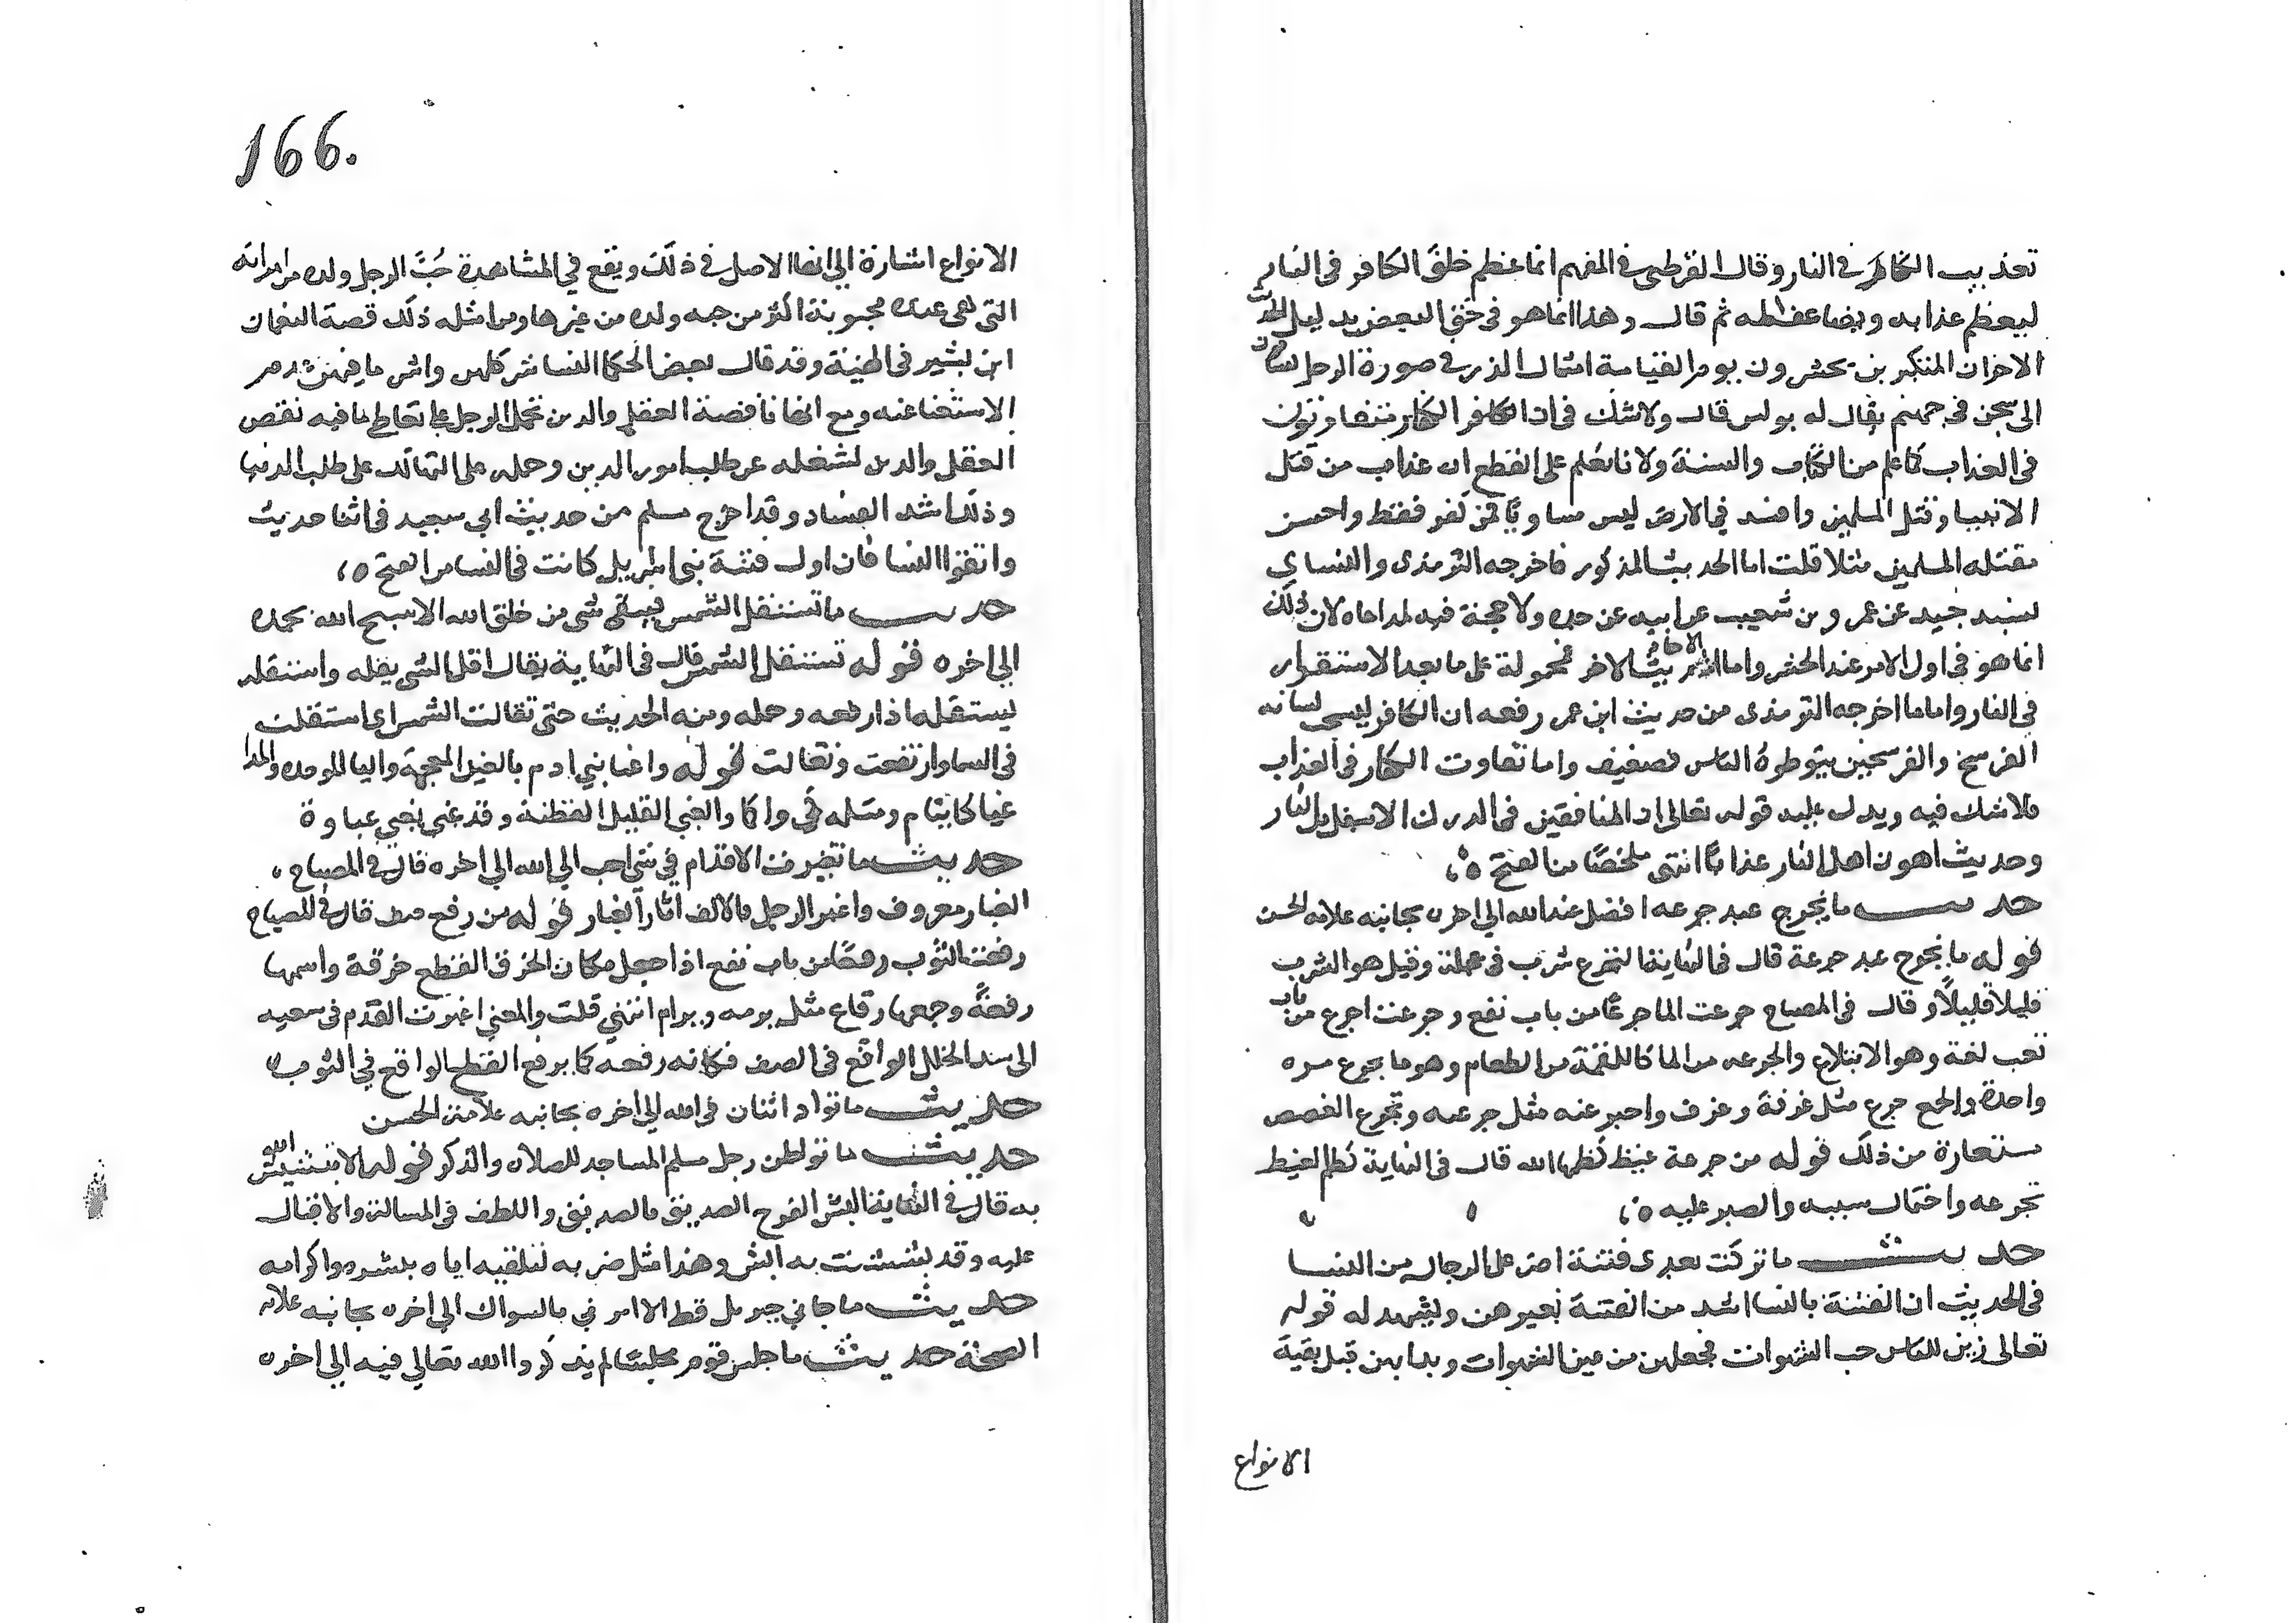 تعذيب الكافر في النار وقال القرطبي في المفهم انما عظم خلق الكافر في النار
ليعظم عذابه ويضاعف المه ثم قال وهذا انما هو في حق البعض بدليل الحديث
الاخر ان المتكبرين يحشرون يوم القيامة امثال الذر في صورة الرجال يساقون
الى سجن في جهنم يقال له بولس قال ولا شك في ان الكافر الكفار متفاوتون
في العذاب كما علم من الكتاب والسنة ولانا نعلم على القطع ان عذاب من قتل
الانبيا وقتل المسلمين وافسد في الارض ليس مساويًا لمن كفر فقط واحسن
معتمله المسلمين مثلا قلت اما الحديث المذكور فاخرجه الترمذي والنساي
بسند جيد عن عمرو بن شعيب عن ابيه عن جده ولا حجة فيه لمدعاه لان ذلك
انما هو في اول الامر عند الحشر واما الاحاديث الاخر فمحمولة على ما بعد الاستقرار
في النار واما ما اخرجه الترمذي من حديث ابن عمر رفعه ان الكافر ليسحب لسانه
الفرسخ والفرسخين يتوطوه الناس فضعيف واما تفاوت الكفار في العذاب
فلا شك فيه ويدل عليه قوله تعالى ان المنافقين في الدرك الاسفل من النار
وحديث اهون اهل النار عذابا انتهى ملخصًا من الفتح ٥،
حديث ما تجرع عبد جرعه افضل عند الله الى اخره بجانبه علامه الحسن
قوله ما تجرع عبد جرعة قال في النهاية التجرع شرب في عجلة وقيل هو الشرب
قليلا قليلاً وقال في المصباح جرعت الما جرعًا من باب نفع وجرعت اجرع من باب
تعب لغة وهو الابتلاع والجرعه من الما كاللقمة من الطعام وهو ما يجرع مره
واحدة والجمع جرع مثل غرفة وغرف واجترعته مثل جرعته وتجرع الغصص
مستعارة من ذلك قوله من جرعة غيظ كظمها لله قال في النهاية كظم الغيظ
تجرعه واحتمال سببه والصبر عليه ٥،
حديث ما تركت بعدي فتنة اضر على الرجال من النسا
في الحديث ان الفتنة بالنسا اشد من الفتنة بغيرهن ويشهد له قوله
تعالى زين للناس حب الشهوات فجعلهن من عين الشهوات وبدا بهن قبل بقية
الانواع
166.
الانواع اشارة الى انها الاصل في ذلك ويقع في المشاهدة حُبَّ الرجل ولده من امراته
التي هي عنده محبوبة اكثر من حبه ولده من غيرها ومن امثله ذلك قصة النعمان
ابن بشير في الهبة وقد قال بعض الحكما النسا شر كلهن واشر ما فيهن عدم
الاستغنا عنهن ومع انها ناقصة العقل والدين تحمل الرجل على تعاطي ما فيه نقص
العقل والدين لشغله عن طلب امور الدين وحمله على التهالك على طلب الدنيا
وذلك اشد الفساد وقد اخرج مسلم من حديث ابي سعيد في اثنا حديث
واتقوا النسا فان اول فتنة بني اسرايل كانت في النسا من الفتح ٥،
حديث ما تستقل الشمس فيبقى شي من خلق الله الا سبح الله بحمده
الى اخره قوله تستقل الشمس قال في النهاية يقال اقل الشي يقله واستقله
يستقله اذا رفعه وحمله ومنه الحديث حتى تقالت الشمس اي استقلت
في السما وارتفعت وتعالت قوله واغبا بني ادم بالغين المعجمة والبا الموحده والمد
غبا كما بينام ومثله في وا كا والغبي القليل الفطنة وقد غبي يغبي غباوة
حديث ما تغبرت الاقدام في شي احب الى الله الى اخره قال في المصباح،
الغبار معروف واغبر الرجل بالالف اثار الغبار قوله من رقع صف قال في المصباح
رقعت الثوب رقعًا من باب نفع اذا جعل مكان الخرق القطع خرقة واسمها
رقعةً وجمعها رقاع مثل برمه وبرام انتهي قلت والمعني اغبرت القدم في سعيه
الى سد الخلل الواقع في الصف فكانه رقعه كما يرقع القطع الواقع في الثوب
حديث ما تواد اثنان في الله الى اخره بجانبه علامة الحسن
حديث ما توطن رجل مسلم المساجد للصلاه والذكر قوله الا تبشبش الله
به قال في النهاية البش الفرح الصديق بالصديق واللطف في المسالة والاقبال
عليه وقد بششت به ابش وهذا مثل ضربه لتلقيه اياه ببشره واكرامه
حديث ما جاني جبريل قط الا امرني بالسواك الى اخره بجانبه علامه
الصحة حديث ما جلس قوم مجلسًا لم يذكروا الله تعالي فيه الى اخره